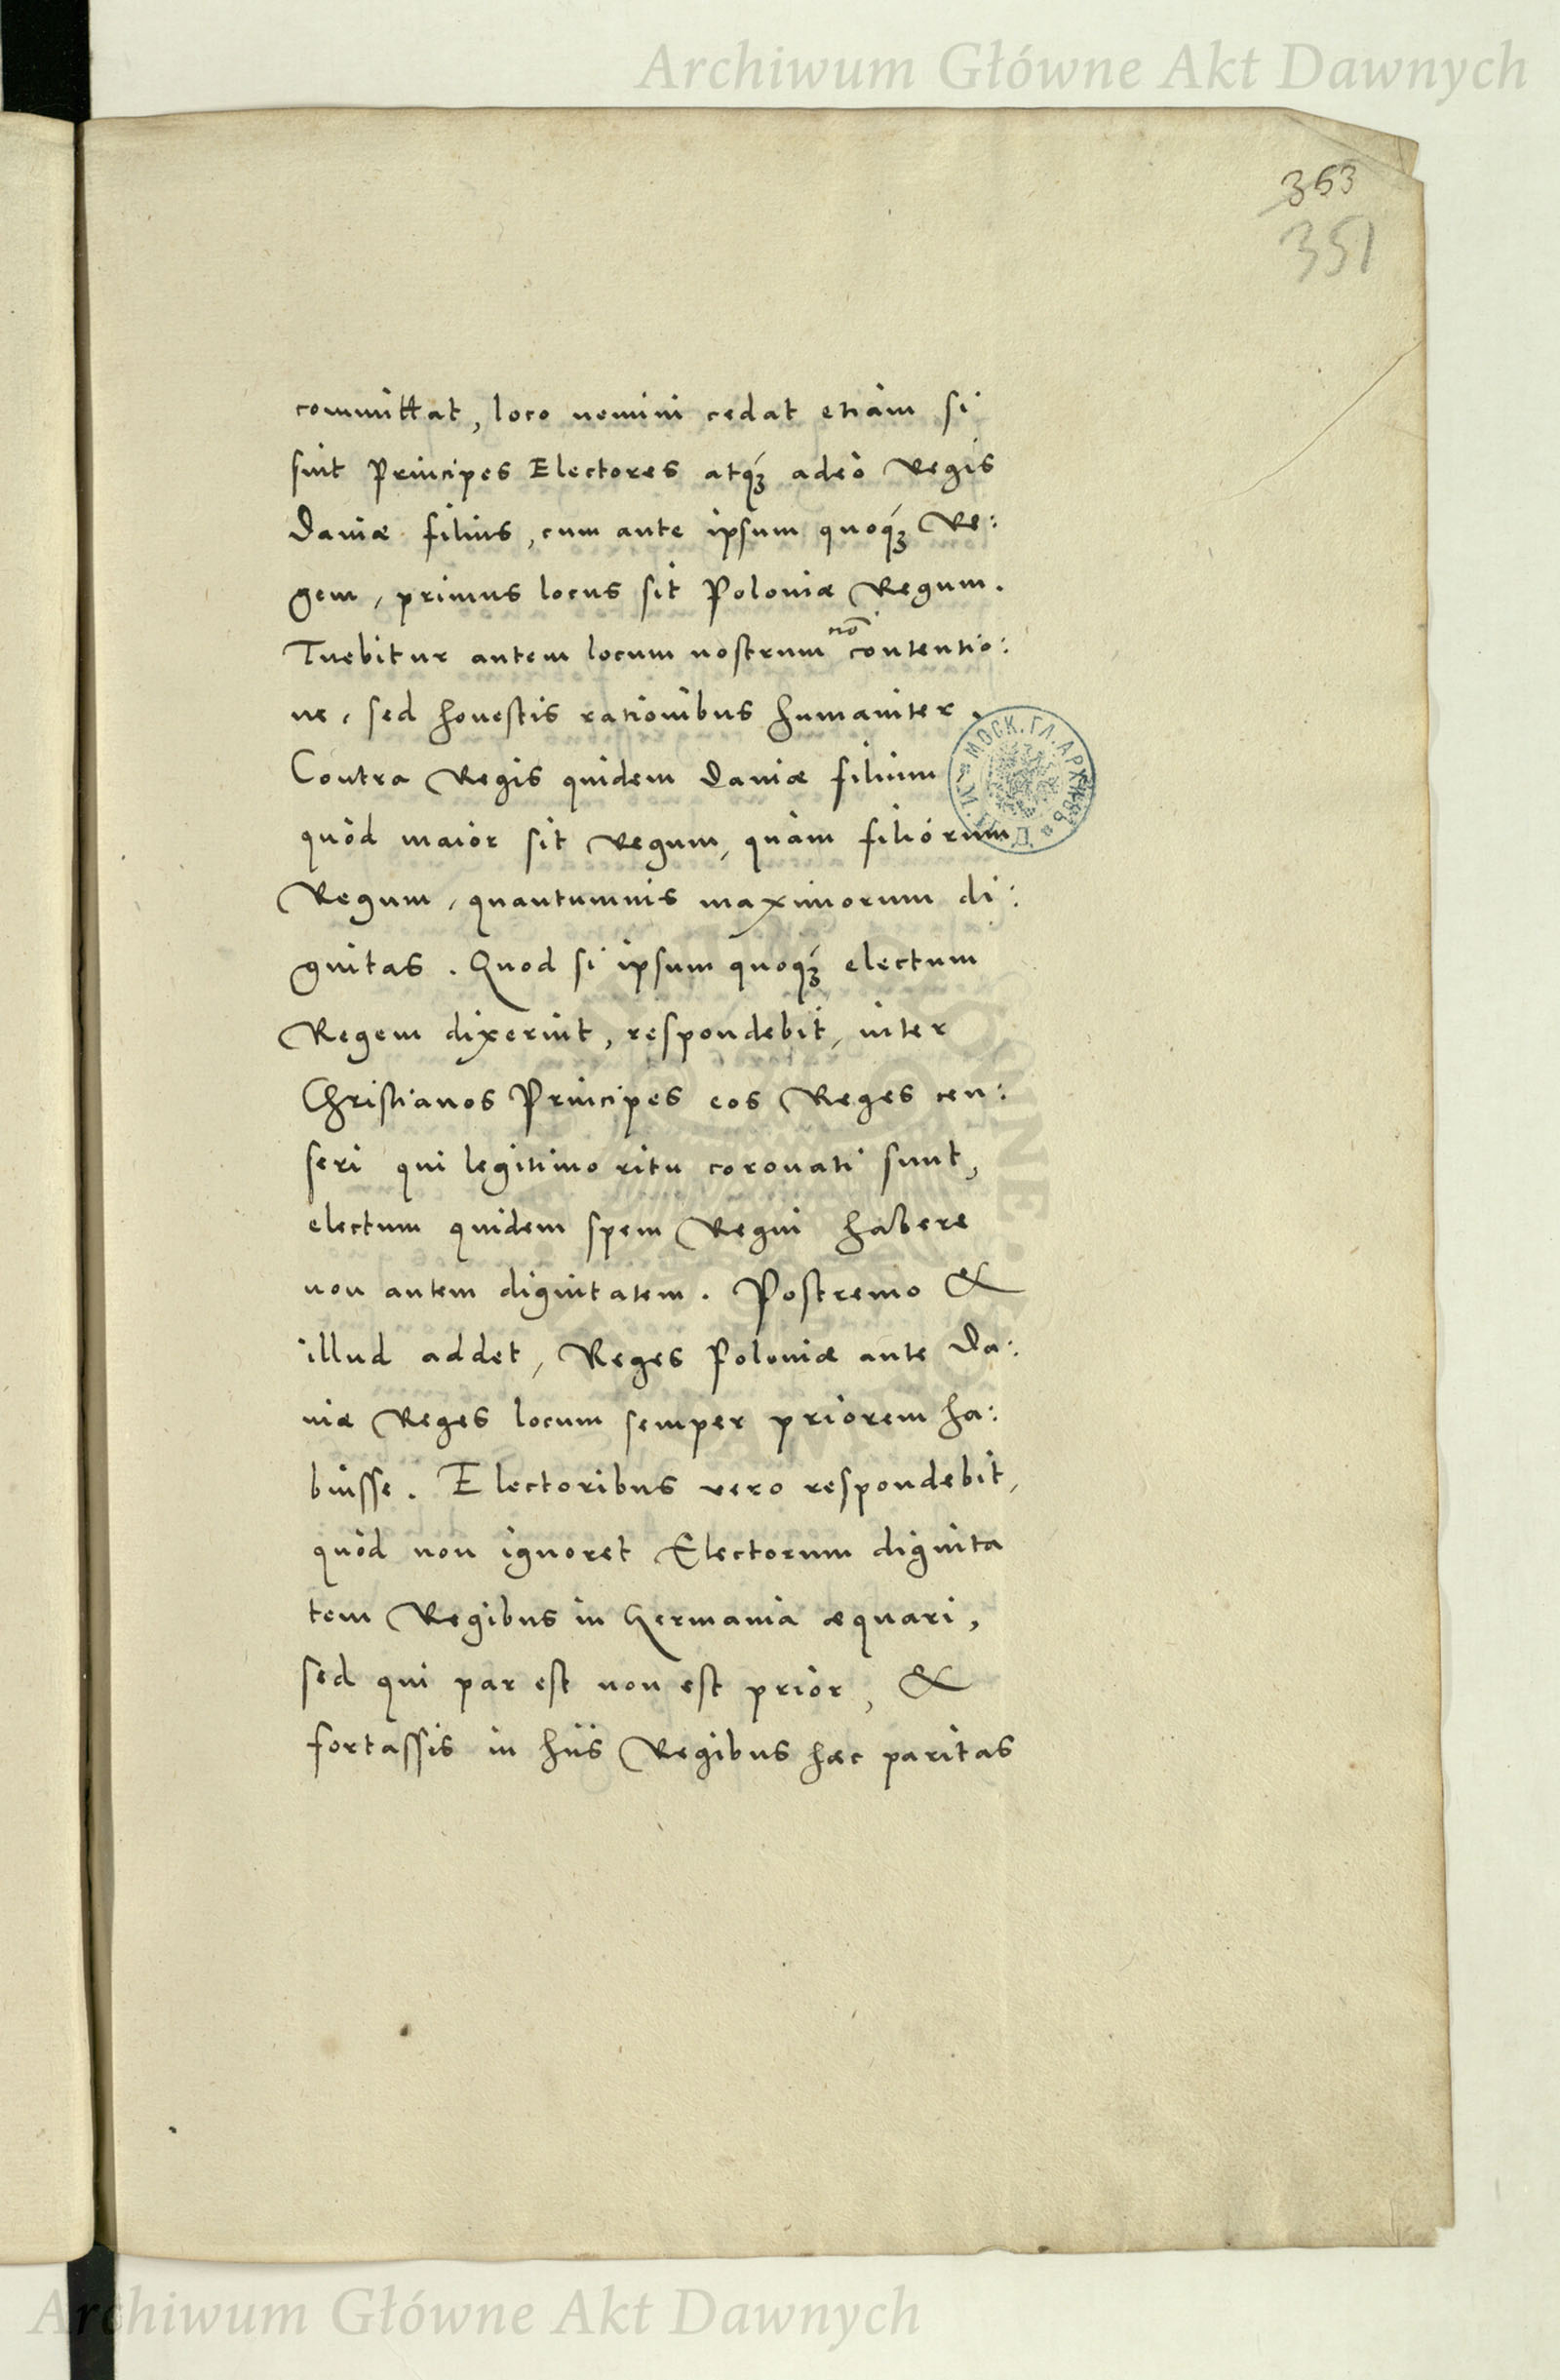 Archiwum Główne Akt Dawnych
363
351
committat, loco nemini cedat etiam si
sint Principes Electores atq́ꝫ adeò Regis
Daniæ filius, cum ante ipsum quoq́ꝫ Re:
gem, primus locus sit Poloniæ Regum.
nō
Tuebitur autem locum nostrum contentio:
ne, sed honestis rationibus humaniter.
Contra Regis quidem Daniæ filium
МОСК. ГЛ. АРХИВЪ
quòd maior sit Regum, quàm filiórum
Regum, quantumuis maximorum di:
gnitas. Quod si ipsum quoq́ꝫ electum
Regem dixerint, respondebit, inter
Christianos Principes eos Reges cen:
seri qui legitimo ritu coronati sunt,
electum quidem spem Regni habere
non autem dignitatem. Postremo &
illud addet, Reges Poloniæ ante Da:
niæ Reges locum semper priorem ha:
buisse. Electoribus vero respondebit,
quòd non ignoret Electorum dignita
tem Regibus in Germania æquari,
sed qui par est non est prior, &
fortassis in hijs Regibus hæc paritas
Archiwum Główne Akt Dawnych